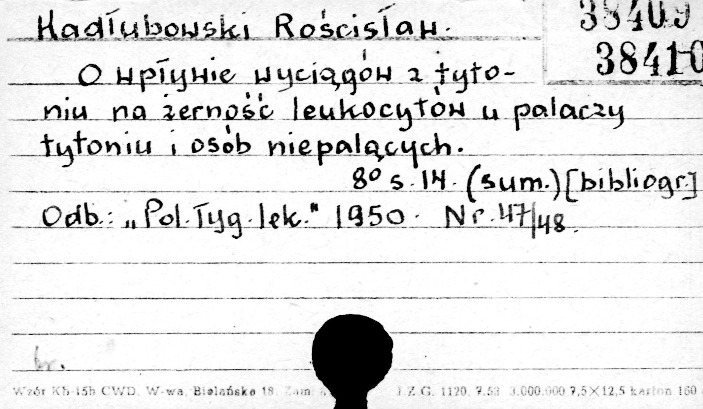 Hadłubowski Rościsław.
38409
38410
O wpływie wyciągów z tyto-
niu na żerność leukocytów u palaczy
tytoniu i osób niepalących.
8° s. 14. (sum.) [bibliogr.]
Odb.: „Pol. Tyg. lek." 1950. Nr. 47/48.
br.
Wzór Kb-15b CWD. W-wa, Bielańska 18. Zam. J.Z.G. 1120. 7.53 3.000.000 7,5×12,5 karton 160